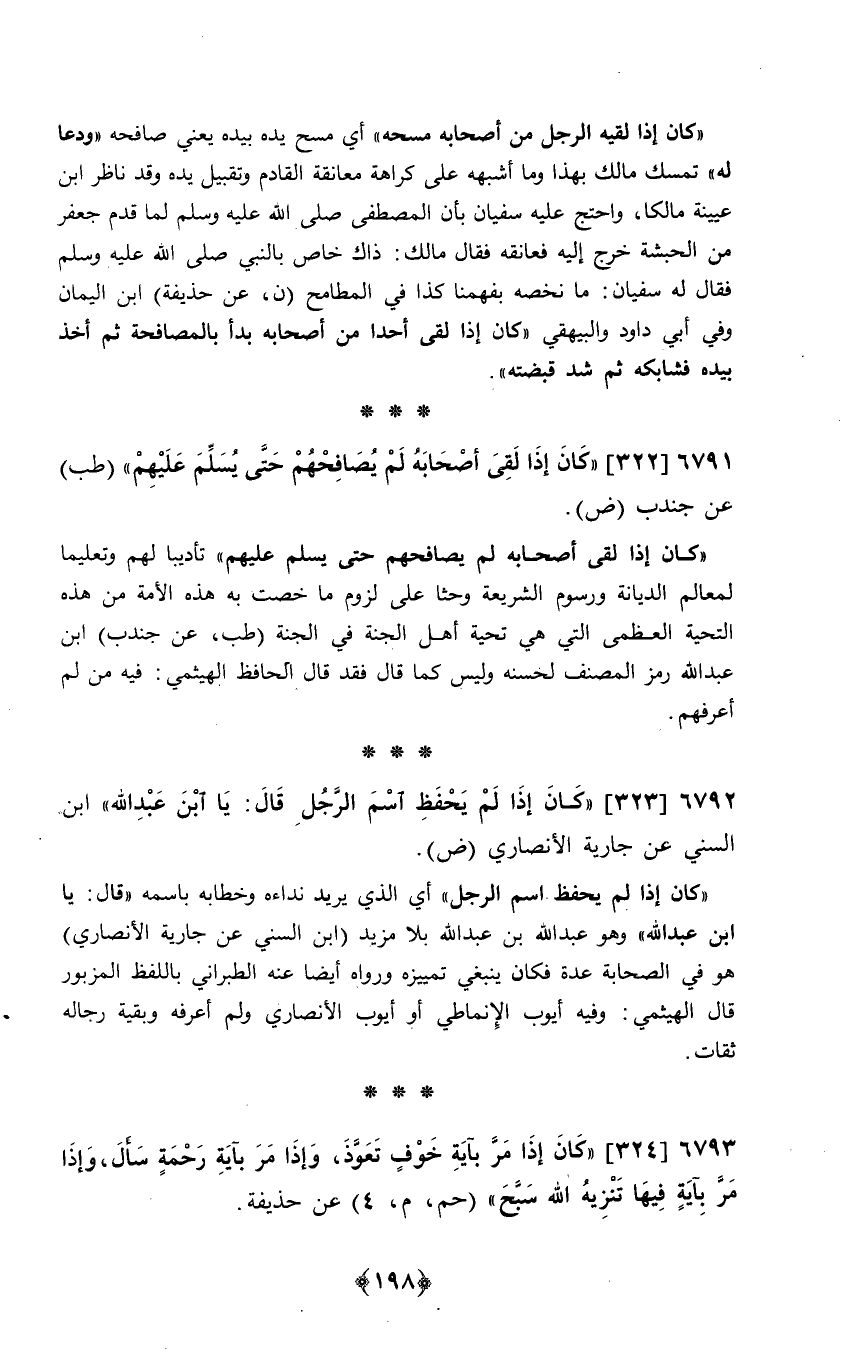 «كان إذا لقيه الرجل من أصحابه مسحه» أي مسح يده بيده يعني صافحه «ودعا
له» تمسك مالك بهذا وما أشبهه على كراهة معانقة القادم وتقبيل يده وقد ناظر ابن
عيينة مالكا، واحتج عليه سفيان بأن المصطفى صلى الله عليه وسلم لما قدم جعفر
من الحبشة خرج إليه فعانقه فقال مالك: ذاك خاص بالنبي صلى الله عليه وسلم
فقال له سفيان: ما نخصه بفهمنا كذا في المطامح (ن، عن حذيفة) ابن اليمان
وفي أبي داود والبيهقي «كان إذا لقى أحدا من أصحابه بدأ بالمصافحة ثم أخذ
بيده فشابكه ثم شد قبضته».
* * *
٦٧٩١ [٣٢٢] «كَانَ إِذَا لَقِىَ أصْحَابَهُ لَمْ يُصَافِحْهُمْ حَتَّى يُسَلِّمَ عَلَيْهِمْ» (طب)
عن جندب (ض).
«كـان إذا لقى أصحـابه لم يصافحهم حتى يسلم عليهم» تأديبا لهم وتعليما
لمعالم الديانة ورسوم الشريعة وحثا على لزوم ما خصت به هذه الأمة من هذه
التحية العـظمى التي هي تحية أهـل الجنة في الجنة (طب، عن جندب) ابن
عبدالله رمز المصنف لحسنه وليس كما قال فقد قال الحافظ الهيثمي: فيه من لم
أعرفهم.
* * *
٦٧٩٢ [٣٢٣] «كَـانَ إذَا لَمْ يَحْفَظِ ٱسْمَ الرَّجُلِ قَالَ: يَا ٱبْنَ عَبْدِالله» ابن
السني عن جارية الأنصاري (ض).
«كان إذا لم يحفظ اسم الرجل» أي الذي يريد نداءه وخطابه باسمه «قال: يا
ابن عبدالله» وهو عبدالله بن عبدالله بلا مزيد (ابن السني عن جارية الأنصاري)
هو في الصحابة عدة فكان ينبغي تمييزه ورواه أيضا عنه الطبراني باللفظ المزبور
قال الهيثمي: وفيه أيوب الإنماطي أو أيوب الأنصاري ولم أعرفه وبقية رجاله
ثقات.
* * *
٦٧٩٣ [٣٢٤] «كَانَ إِذَا مَرَّ بآيَةِ خَوْفٍ تَعَوَّذَ، وَإذَا مَرَ بآيَةِ رَحْمَةٍ سَأَلَ، وَإِذَا
مَرَّ بِآيَةٍ فِيهَا تَنْزِيهُ الله سَبَّحَ» (حم، م، ٤) عن حذيفة.
﴿١٩٨﴾